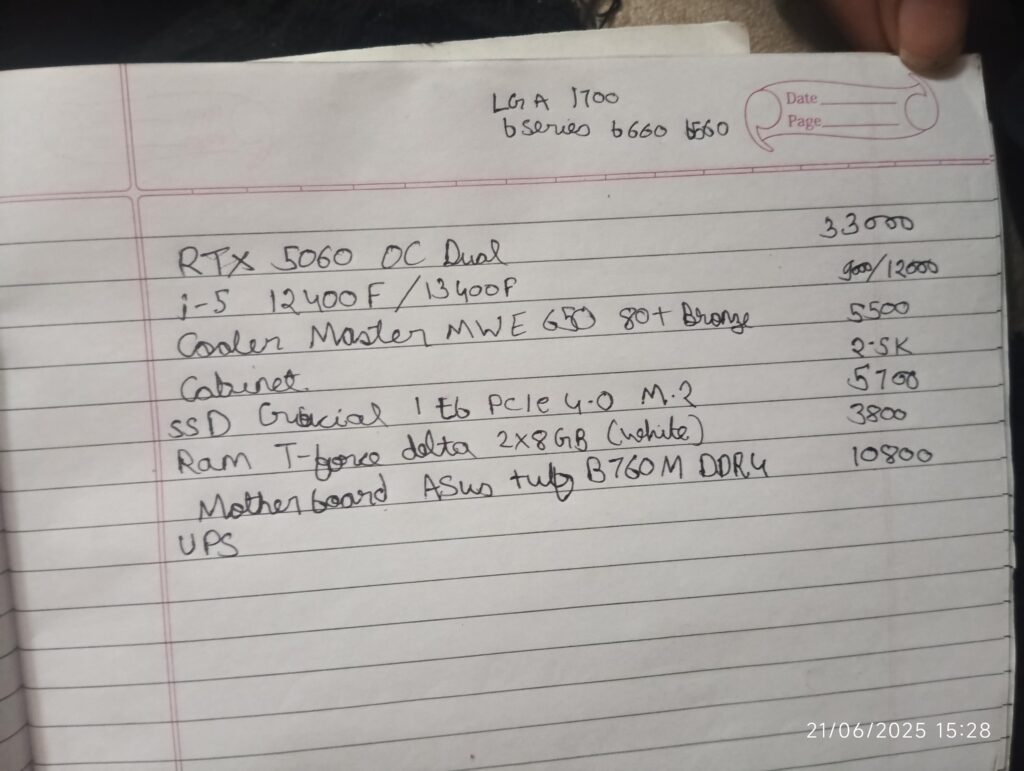 LGA 1700
b series b660 b560
Date
Page
RTX 5060 OC Dual 33000
i-5 12400F / 13400F 900/12000
Cooler Master MWE 650 80+ Bronze 5500
Cabinet. 2.5K
SSD Crucial 1 tb PCIe 4.0 M.2 5700
Ram T-force delta 2x8GB (white) 3800
Motherboard ASus tuf B760M DDR4 10800
UPS
21/06/2025 15:28